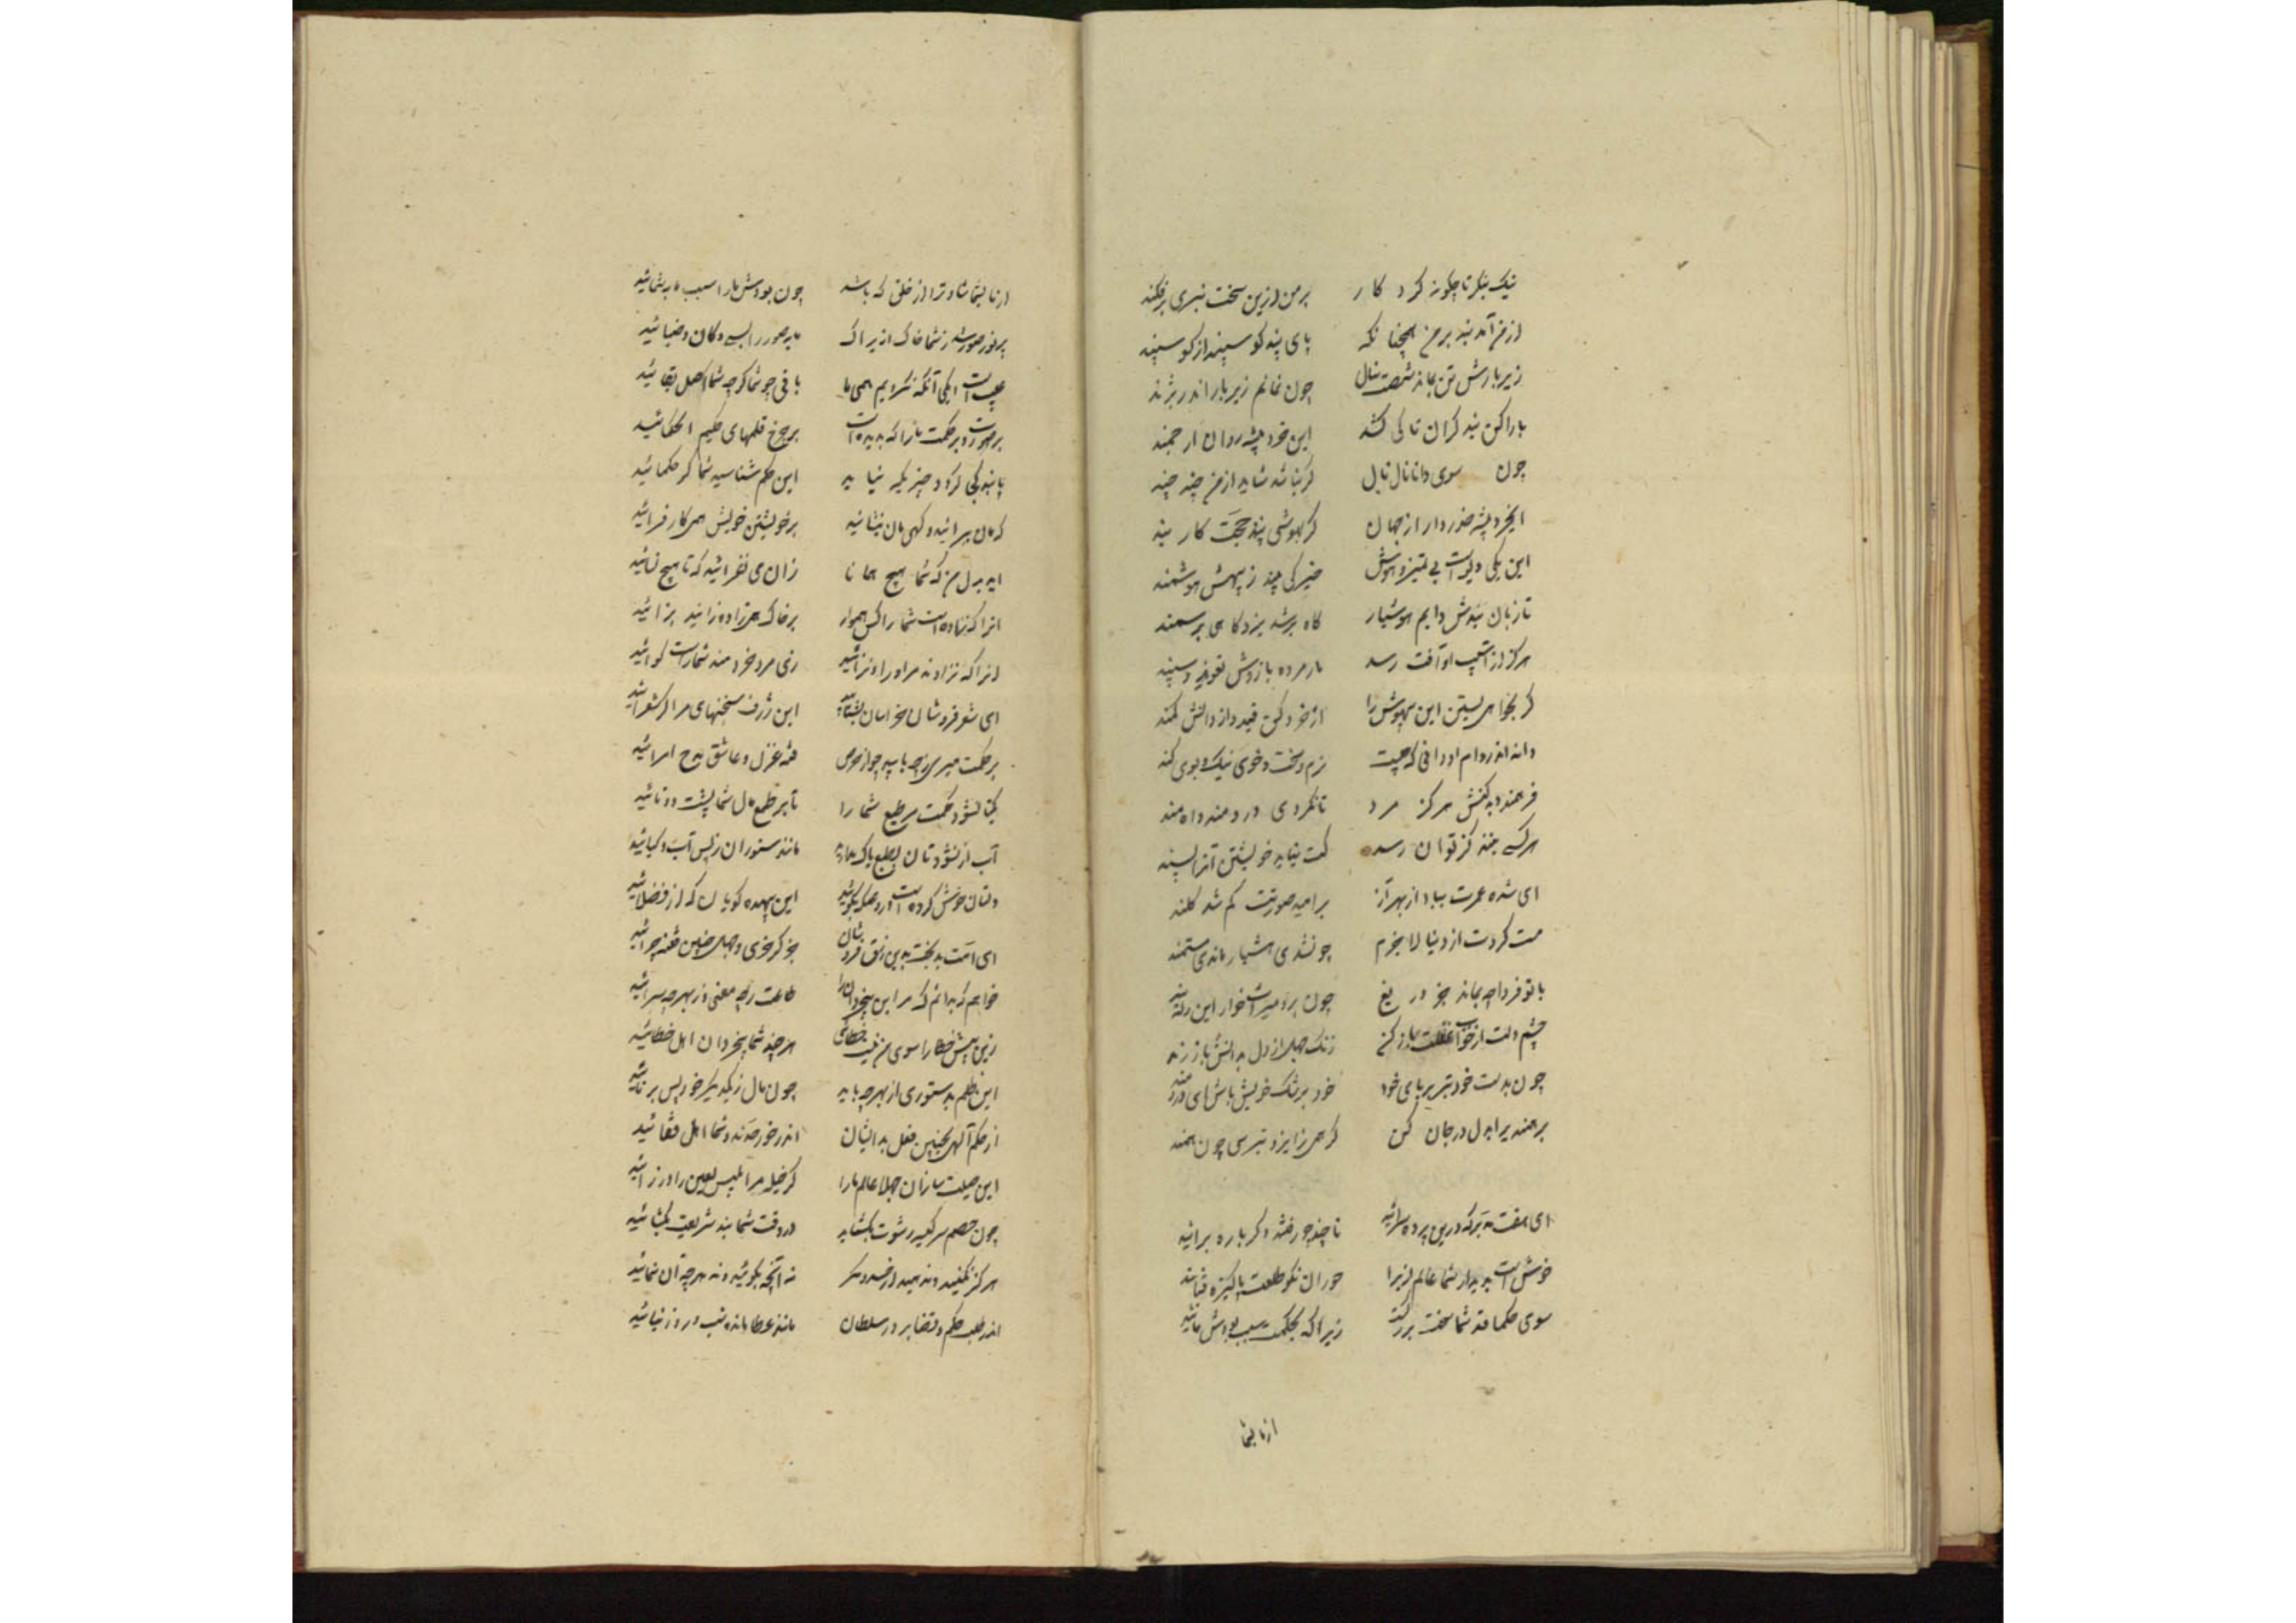 نیک بنگر تا چگونه کرد کار بر من ازین سخت نبری برفکند
از من آمد بند بر من همچنانکه پای بند گوسپند از گوسپند
زیر بارش تن بماند شصت سال چون نمانم زیر بار اندر نژند
بار این بند گران تا کی کشد این خرد پیشه روان ارجمند
چون سوی دانا نال نال گر نباشد شاید از من چند چند
ای خرد پیشه حذر دار از جهان گر بهوشی پند حجت کار بند
این یکی دیو است بی تمیز و هوش خیرگی بیند ز بیهش هوشمند
تا زبان بندش دایم هوشیار گاه بر شد نزد گاهی بر سمند
هرگز از آسیب او آفت رسد باز مرده بازوش تعویذ و سپند
گر بخواهی بستن این بیهوش را از خرد کن قید و از دانش کمند
دانه اندر دام او دانی که چیست نرم و سخت و خوی نیک و بوی کند
فرهمند و به کنش هرگز مرد تا نکردی دردمند و آهمند
هر کسی چند کز توان رسد کت نیاید خویشتن آنرا پسند
ای شده عمرت بباد از بهر آز بر امید صورتت کم شد کلند
مست کردت آز دنیا لاجرم چون شدی هشیار ماندی مستمند
با تو فردا چه بماند جز دریغ چون برد میراث خوار این
چشم دلت از خواب غفلت باز کن زنگ جهل از دل بدانش باز رند
چون بدست خود تبر بر پای خود خود بزشک خویش باش ای دردمند
بر هنر برا دل در جان کن گر همی از ایزد بترسی چون همند
ای هفت مدبر که درین پرده سرائید تا چند چو رفتید دگر باره برائید
خوش است بدیدار شما عالم ازیرا حوران نکو طلعت پاکیزه لقائید
سوی حکما قدر شما سخت بزرگست زیرا که بحکمت سبب بودش مائید
از ما بشما
از ما بشما شادتر از خلق که باشد چون بودش ما را سبب و مایه شمائید
پر نور صور شد ز شما خاک ازیراک مایه صور را بسی و کان و ضیائید
عیب است یکی آنکه نگردیم همی ما باقی چو شما گرچه شما اصل بقائید
بر صورت و بر حکمت ما را که بدیده است بر چرخ قلمهای حکیم الحکمائید
پاینده کی گردد چیزیکه نپاید این حکم شناسید شما گر حکمائید
که مان برانید و گهی مان بنشانید بر خویشتن خویش همی کار فزائید
اید بدل من که شما هیچ همانا زان می نفزائید که تا هیچ نسائید
انرا که نزاده است شما را کس هموار بر خاک همی زاده و زاینده بزائید
انرا که نزادند مر او را و نزائید زی مرد خردمند شما راست گوائید
ای شعر فروشان خراسان بشناسید این ژرف سخنهای مرا گر شعرائید
بر حکمت میری ز چه یابید چو از حرص فتنه غزل و عاشق مدح امرائید
یکتا نشود حکمت مر طبع شما را تا بر طمع مال شما پشت دوتائید
آب ار نشود تان بطمع پاک ماند مانند ستوران ز پس آب و گیائید
دلتان خوش کرده است دروغی که بگوئید این بیهده گویان که از فضلائید
ای امت بدبخت بدین زرق فروشان جز کز خری و جهل چنین فتنه چرائید
خواهم که بدانم که مر این بیخردانرا طاعت ز چه معنی و ز بهر چه سرائید
زین بیش خطا را سوی من نیست خطائی هر چند شما بیخردان اهل خطائید
این ظلم بدستوری از بهر چه باید چون مال ز یکدیگر خود پس بربائید
از حکم آلهی بچنین فعل بد ایشان اندر خور حدند و شما اهل قفائید
این حیلت سازان جهلا عالم ما را گر خیل مر ابلیس لعین را وزرائید
چون خصم سر کیسه رشوت بگشاید در وقت شما بند شریعت بگشائید
هرگز نکنید و ندهید از حسد و مکر نه آنچه بگوئید و نه هرچه آن نمائید
اندر طلب حکم و قضا بر در سلطان مانند عصا مانده شب و روز بپائید